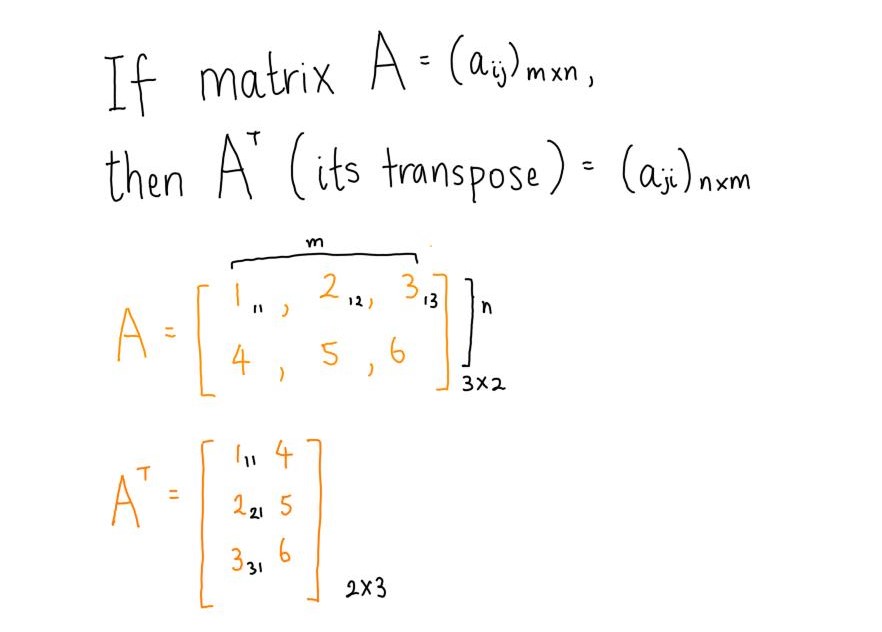 If matrix A = (aij)m×n,
then Aᵀ (its transpose) = (aji)n×m
m
A = [ 1 11 , 2 12, 3 13 ] ] n
4 , 5 , 6
3×2
Aᵀ = [ 1 11 4 ]
2 21 5
3 31 6
2×3